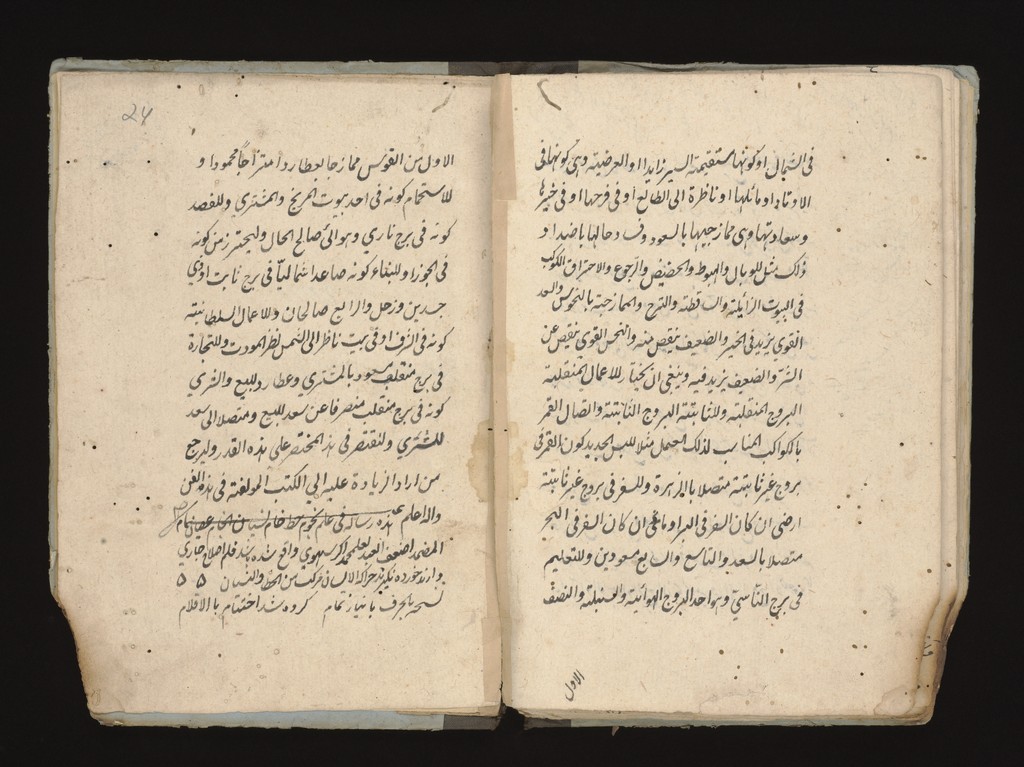 فى الشمال او كونها مستقيمة السير زايدا او العرضية وهى كونها فى
الاوتاد او مائلها او ناظرة الى الطالع او فى فرحها او فى حيزها
و سعادتها وهى ممازجيها بالسعود وفساد حالها باضداد
ذلك مثل الوبال والهبوط والحضيض والرجوع والاحتراق الكوكب
فى البيوت الزايلة والساقطة والترح والممازجة بالنحوس والسعد
القوى يزيد فى الخير والضعيف ينقص منه والنحس القوى ينقص عن
الشر والضعيف يزيد فيه وينبغى ان يختار للاعمال المنقلبة
البروج المنقلبة وللثابتة البروج الثابتة واتصال القمر
بالكواكب المناسب لذلك العمل مثلا للبس الجديد كون القمر فى
بروج غير ثابتة متصلا بالزهرة وللسفر فى بروج غير ثابتة
ارضى ان كان السفر فى البر او مائى ان كان السفر فى البحر
متصلا بالسعد والتاسع والسابع مسعودين وللتعليم
فى برج انسى وهو احد البروج الهوائية والسنبلة والنصف
الاول
24
الاول من القوس ممازجا بعطارد امتزاجا محمودا و
للاستحمام كونه فى احد بيوت المريخ والمشترى وللفصد
كونه فى برج نارى وهوائى صالح الحال وليحترز من كونه
فى الجوزا وللبناء كونه صاعدا شماليا فى برج ثابت او ذى
جسدين وزحل والرابع صالحان وللاعمال السلطانية
كونه فى الشرف او فى بيت ناظرا الى الشمس نظر المودت وللتجارة
فى برج منقلب مسعود بالمشترى وعطارد للبيع والشرى
كونه فى برج منقلب منصرفا عن سعد للبيع ومتصلا الى سعد
للمشترى ولنقتصر فى هذا المختصر على هذه القدر وليرجع
من اراد الزيادة عليه الى الكتب المولفة فى هذه الفن
والله اعلم هذه رساله فى علم نجوم
اضعف العبد واقع شده باشد قلم اصلاح جارى
دارند خورده نكيرند الانسان مركب من الخطا والنسيان
تمام كروه شد اختتام بالاقلام